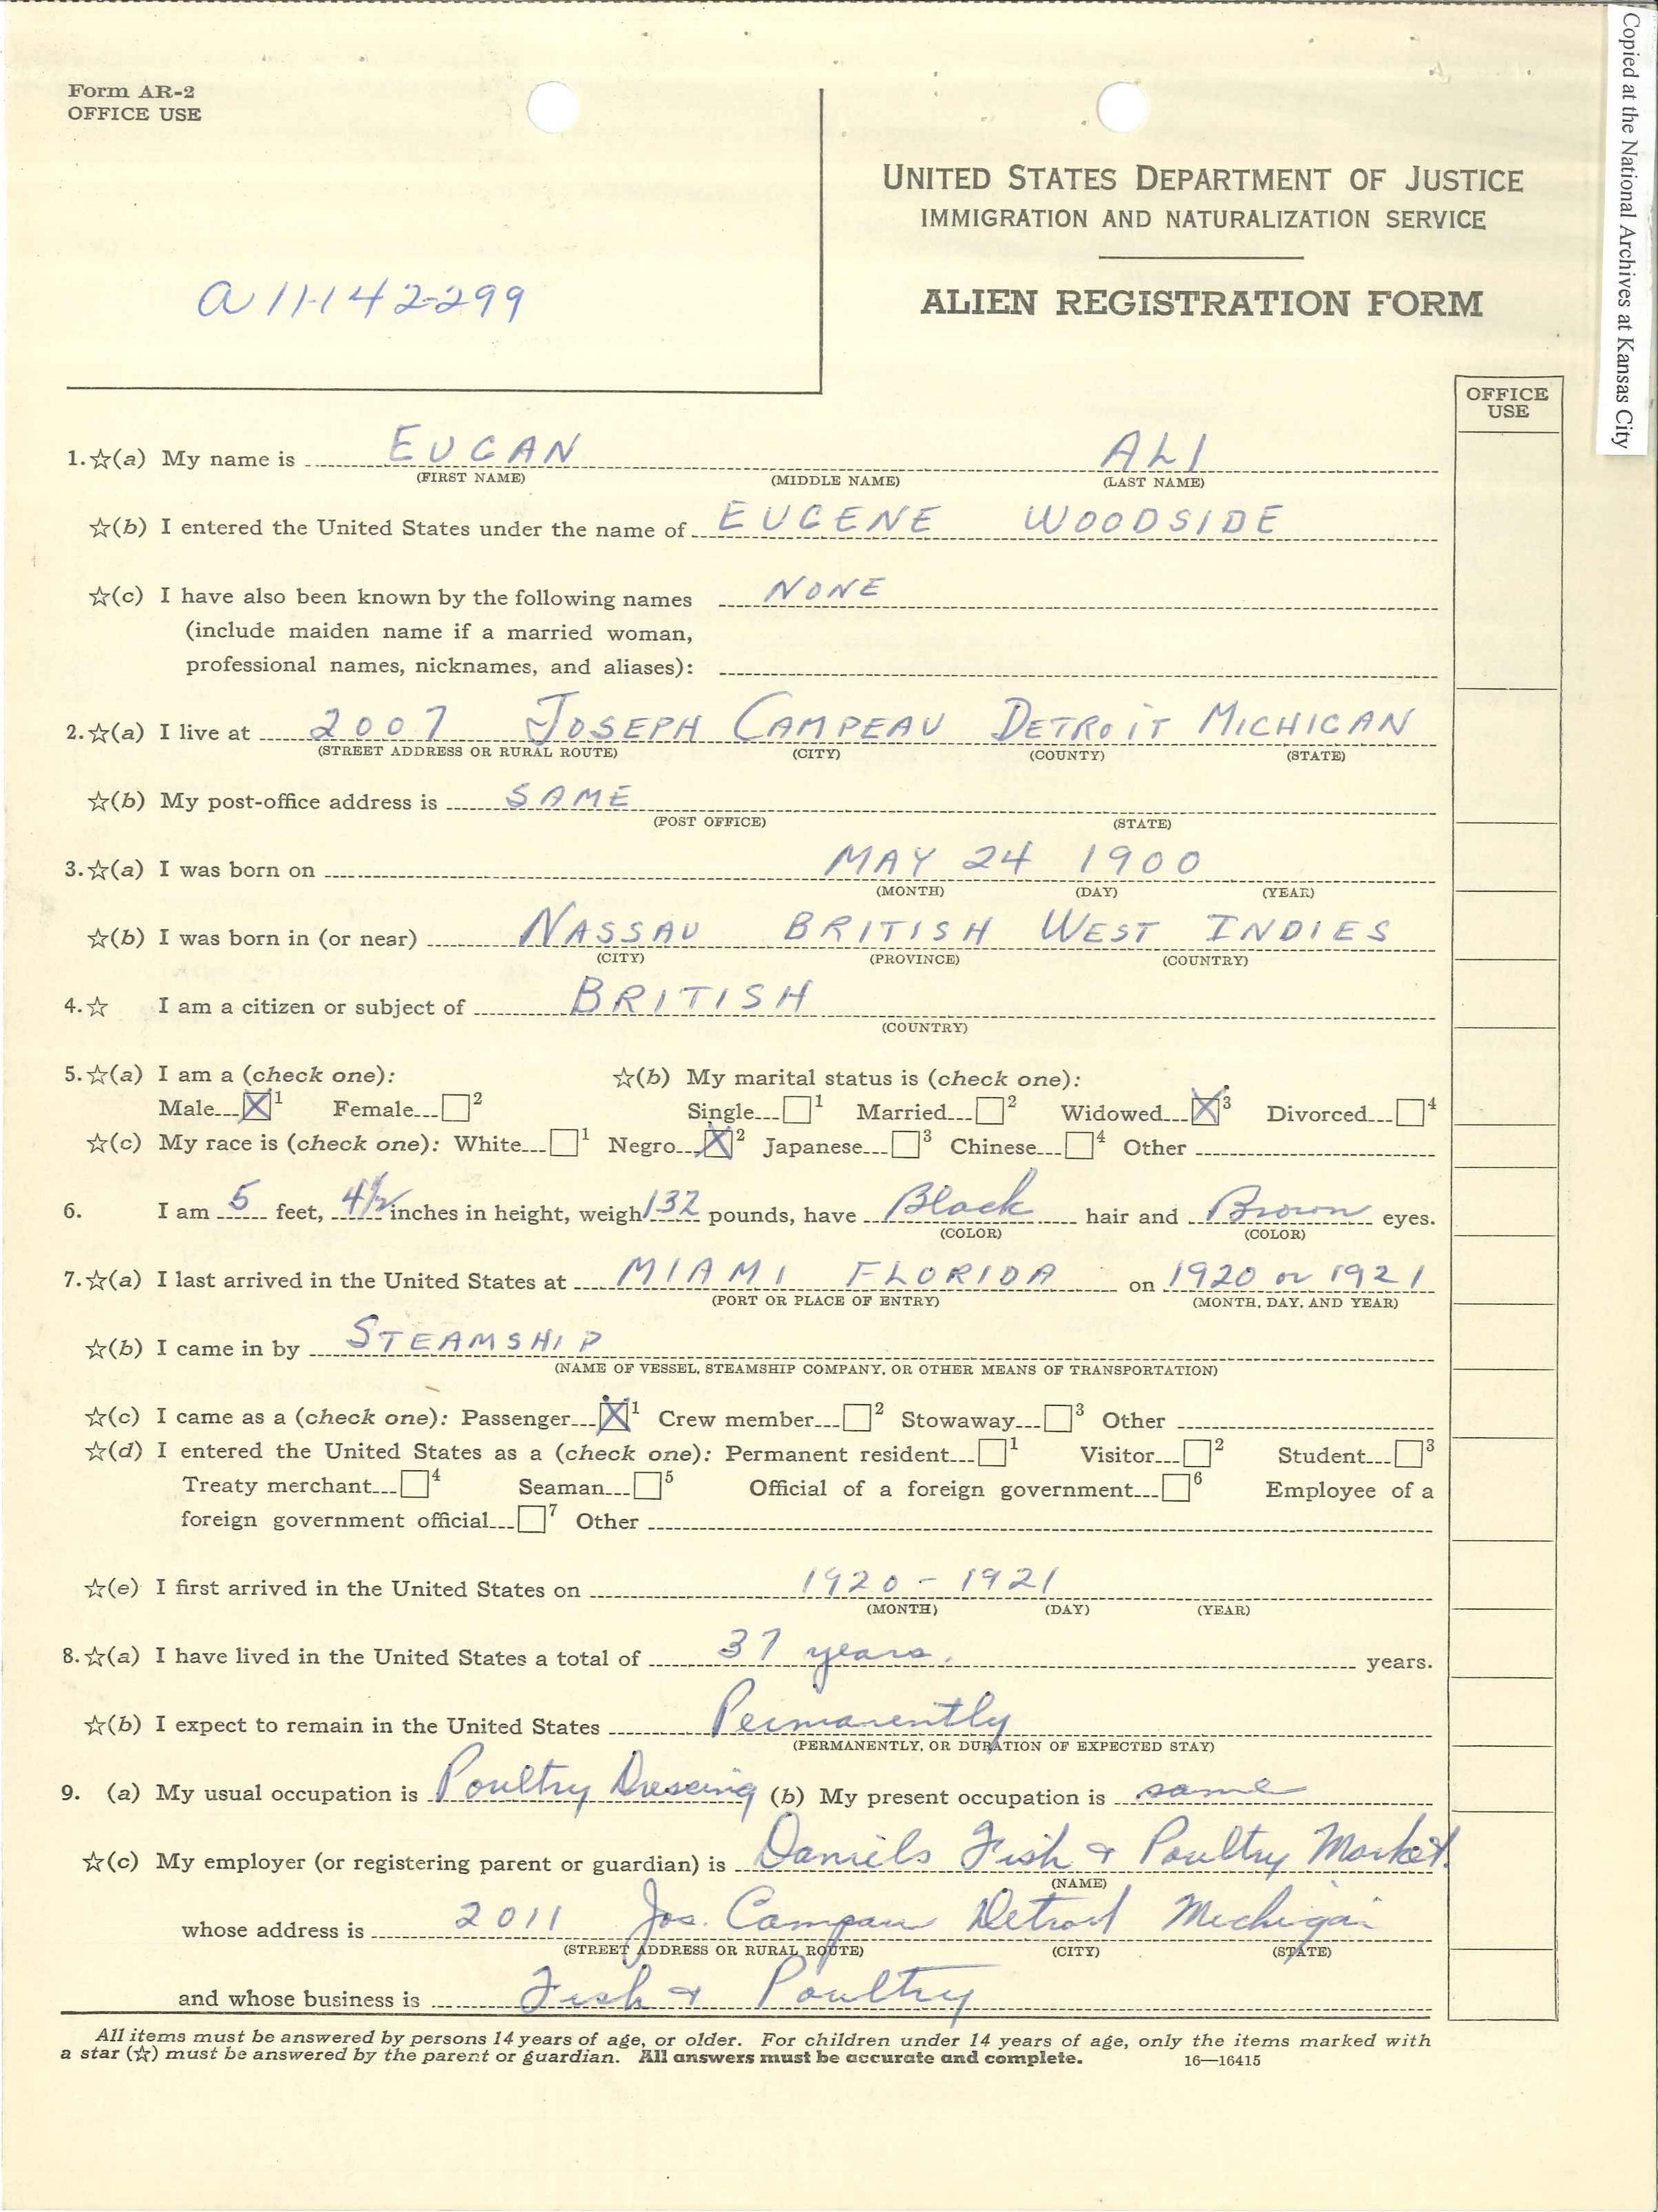 Copied at the National Archives at Kansas City
Form AR-2
OFFICE USE
UNITED STATES DEPARTMENT OF JUSTICE
IMMIGRATION AND NATURALIZATION SERVICE
ALIEN REGISTRATION FORM
a 11-142-299
OFFICE USE
1.☆(a) My name is EUGAN ALI
(FIRST NAME) (MIDDLE NAME) (LAST NAME)
☆(b) I entered the United States under the name of EUGENE WOODSIDE
☆(c) I have also been known by the following names NONE
(include maiden name if a married woman,
professional names, nicknames, and aliases):
2.☆(a) I live at 2007 JOSEPH CAMPEAU DETROIT MICHIGAN
(STREET ADDRESS OR RURAL ROUTE) (CITY) (COUNTY) (STATE)
☆(b) My post-office address is SAME
(POST OFFICE) (STATE)
3.☆(a) I was born on MAY 24 1900
(MONTH) (DAY) (YEAR)
☆(b) I was born in (or near) NASSAU BRITISH WEST INDIES
(CITY) (PROVINCE) (COUNTRY)
4.☆ I am a citizen or subject of BRITISH
(COUNTRY)
5.☆(a) I am a (check one): ☆(b) My marital status is (check one):
Male X 1 Female 2 Single 1 Married 2 Widowed X 3 Divorced 4
☆(c) My race is (check one): White 1 Negro X 2 Japanese 3 Chinese 4 Other
6. I am 5 feet, 4½ inches in height, weigh 132 pounds, have Black hair and Brown eyes.
(COLOR) (COLOR)
7.☆(a) I last arrived in the United States at MIAMI FLORIDA on 1920 or 1921
(PORT OR PLACE OF ENTRY) (MONTH, DAY, AND YEAR)
☆(b) I came in by STEAMSHIP
(NAME OF VESSEL, STEAMSHIP COMPANY, OR OTHER MEANS OF TRANSPORTATION)
☆(c) I came as a (check one): Passenger X 1 Crew member 2 Stowaway 3 Other
☆(d) I entered the United States as a (check one): Permanent resident 1 Visitor 2 Student 3
Treaty merchant 4 Seaman 5 Official of a foreign government 6 Employee of a
foreign government official 7 Other
☆(e) I first arrived in the United States on 1920 - 1921
(MONTH) (DAY) (YEAR)
8.☆(a) I have lived in the United States a total of 37 years. years.
☆(b) I expect to remain in the United States Permanently
(PERMANENTLY, OR DURATION OF EXPECTED STAY)
9. (a) My usual occupation is Poultry Dressing (b) My present occupation is same
☆(c) My employer (or registering parent or guardian) is Daniels Fish & Poultry Market.
(NAME)
whose address is 2011 Jos. Campau Detroit Michigan
(STREET ADDRESS OR RURAL ROUTE) (CITY) (STATE)
and whose business is Fish & Poultry
All items must be answered by persons 14 years of age, or older. For children under 14 years of age, only the items marked with
a star (☆) must be answered by the parent or guardian. All answers must be accurate and complete. 16—16415